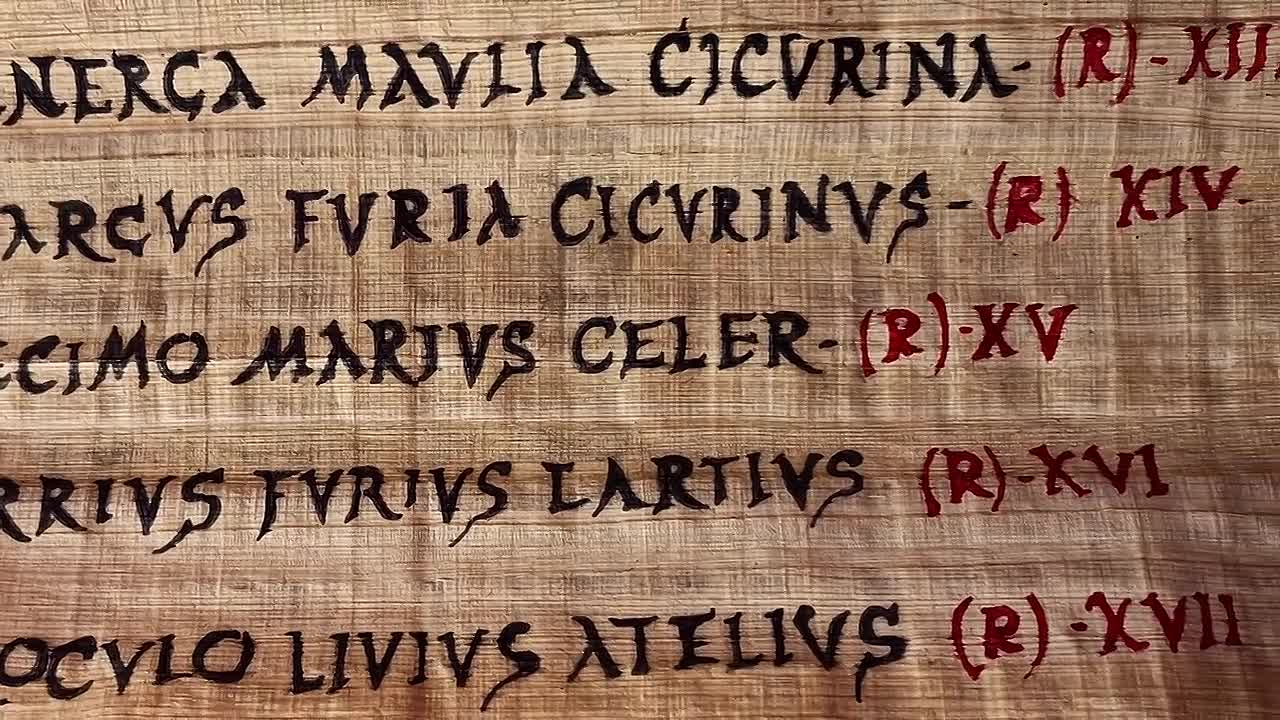 NERCA MAVLIA CICVRINA- (R)-XII
ARCVS FVRIA CICVRINVS-(R) XIV.
ECIMO MARIVS CELER-(R)-XV
RRIVS FVRIVS LARTIVS (R)-XVI
OCVLO LIVIVS ATELIVS (R)-XVII